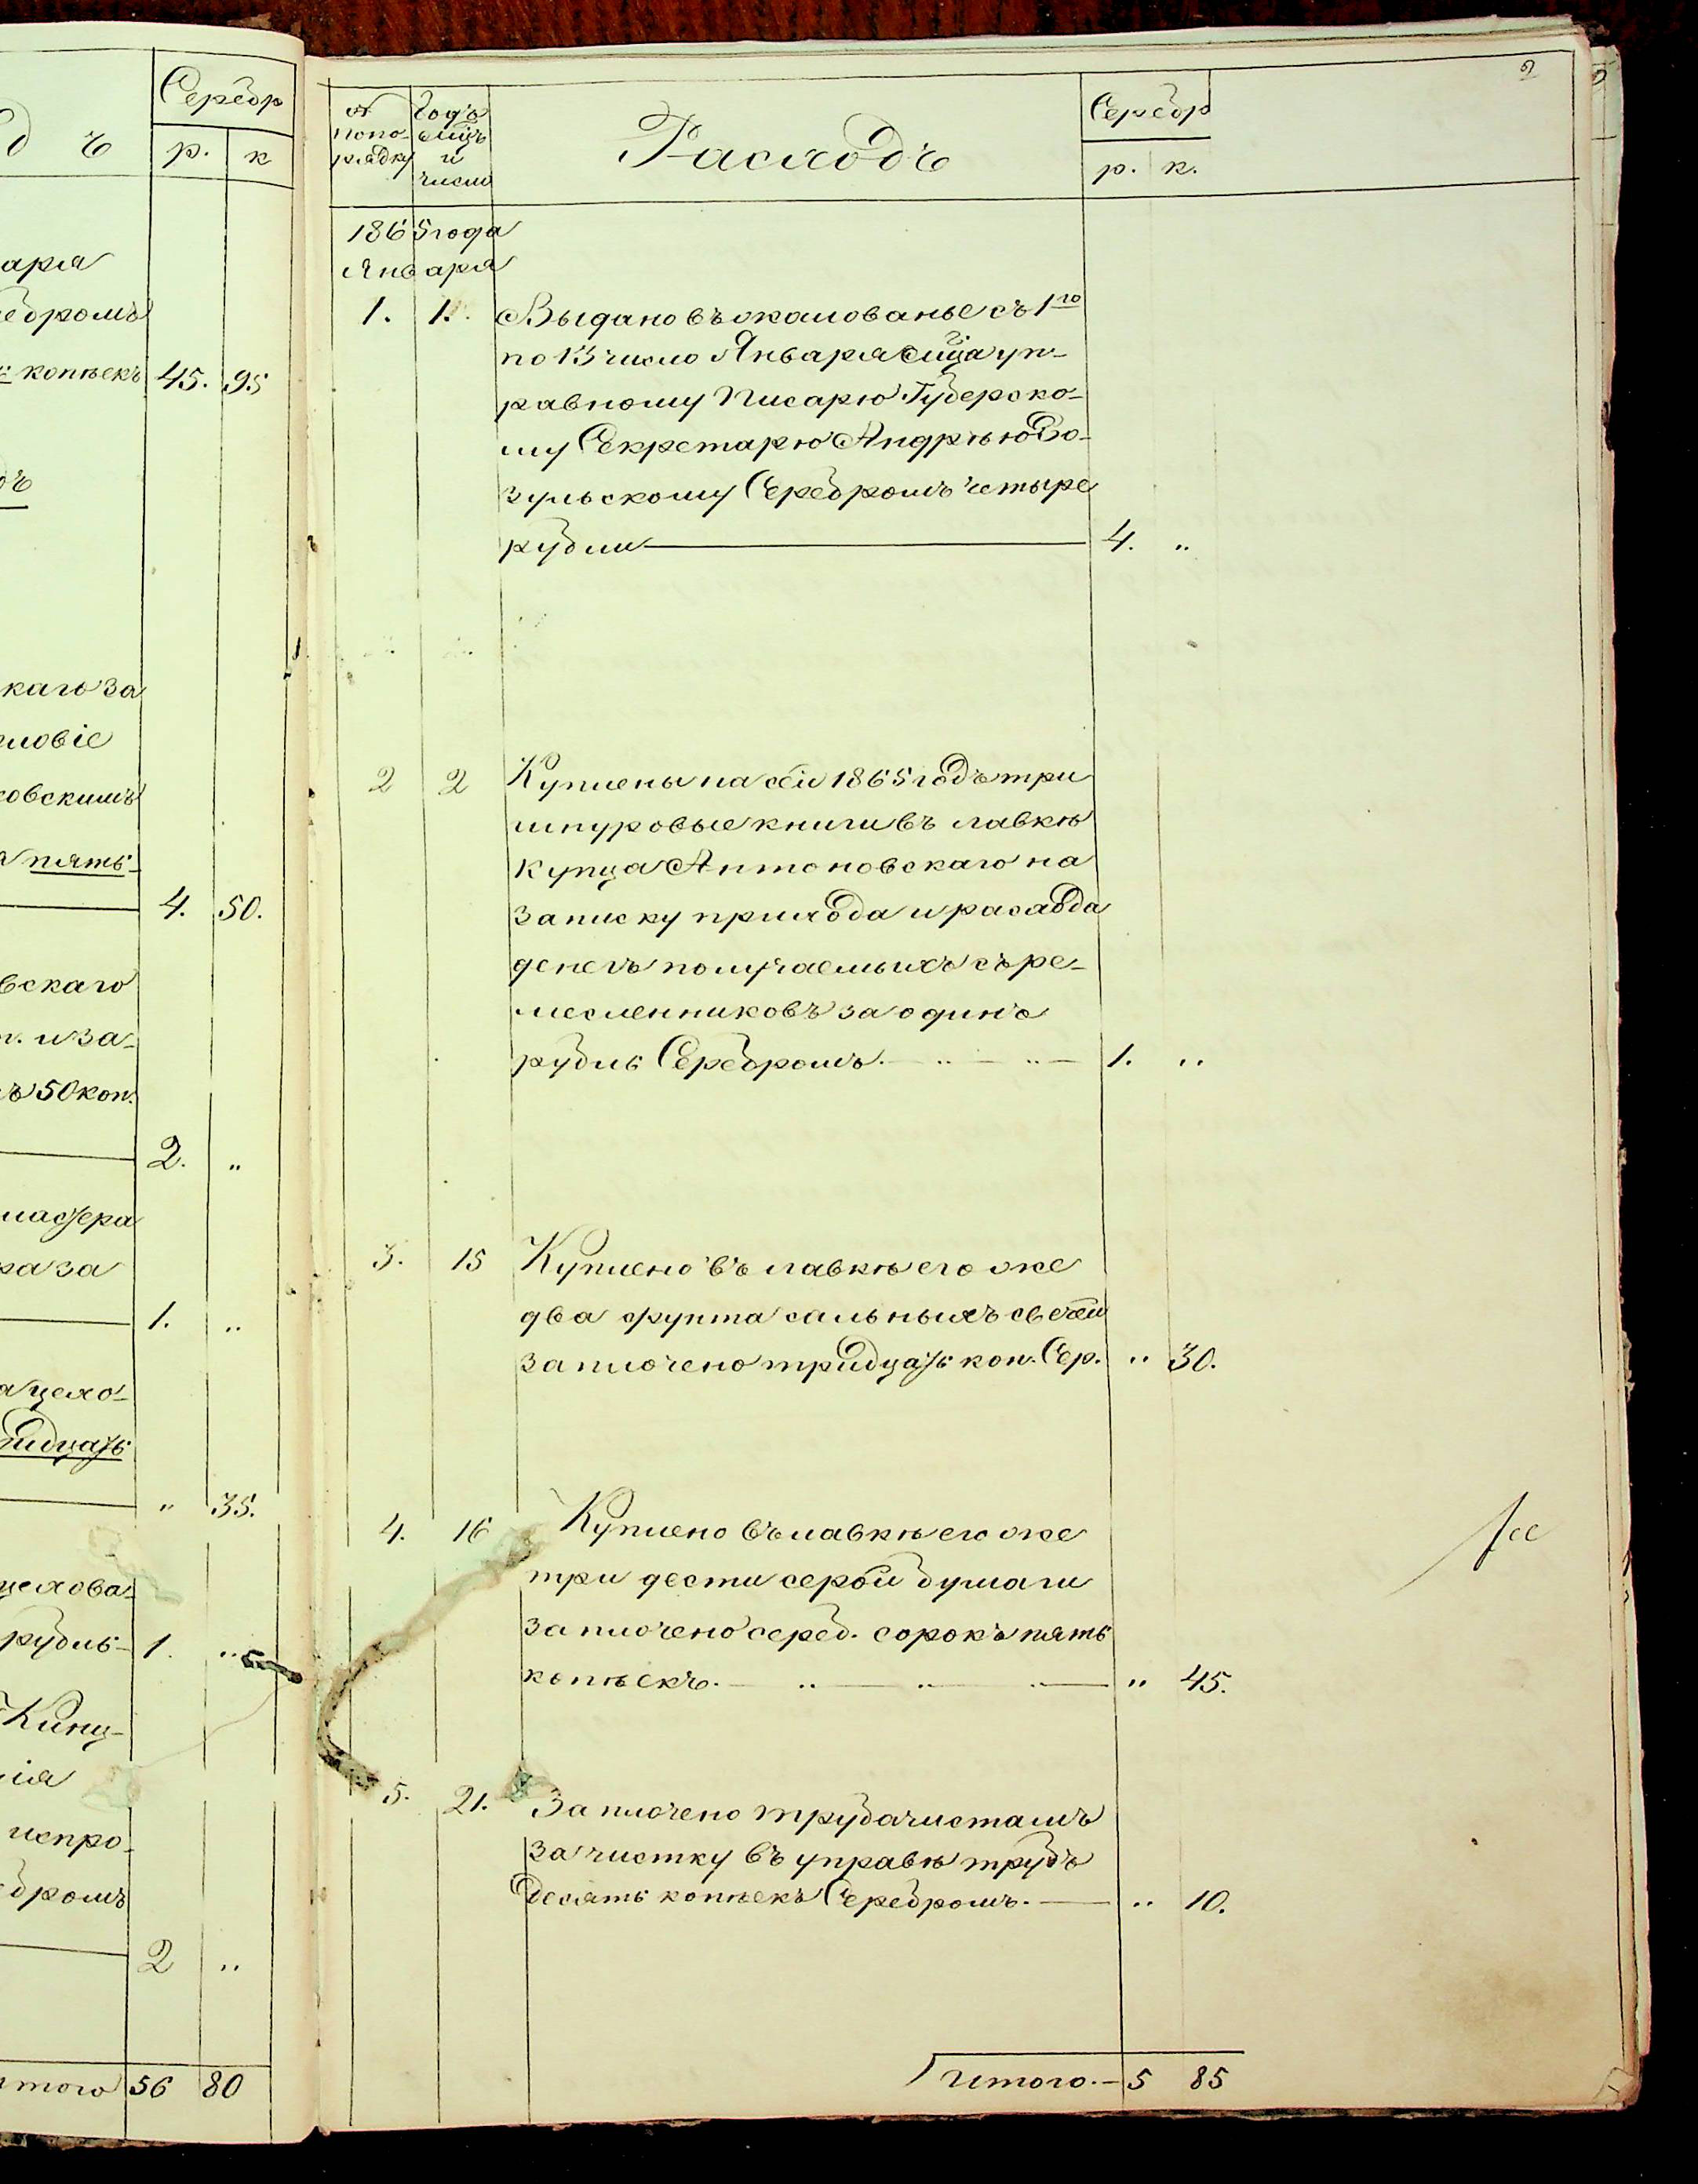 Серебр
д ъ
р. к
аря
ебромъ
копѣекъ 45. 95
дъ
каго за
ловіе
ковскимъ
пять-
4. 50.
вскаго
и за-
ъ 50 коп.
2. "
мастера
ра за
1. "
а цехо-
ридцать
" 35.
цехова-
рубль- 1. "
Кинц-
ія
испро-
ебромъ
2 "
итого 56 80
2
№ попо-рядку
Годъ мцъ и число
Расходъ
Серебр
р. к.
1865 года
Января
1. 1. Выдано въ жалованье съ 1го
по 13 число Января мца уп-
равному Писарю Губерско-
му Секретарю Андрѣю Во-
зульскому Серебромъ четыре
рубли 4. "
2 2 Куплены на сей 1865 годъ три
шнуровые книги въ лавкѣ
купца Антоновскаго на
записку прихода и расхода
денегъ получаемыхъ съ ре-
месленниковъ за одинъ
рубль Серебромъ. 1. "
3. 15 Куплено въ лавкѣ его же
два фунта сальныхъ свечей
заплочено тридцать коп. Сер. " 30.
4. 16 Куплено въ лавкѣ его же
три дести серой бумаги
заплочено сереб. сорокъ пять
копѣекъ. " 45.
5. 21. Заплочено трубачистамъ
за чистку въ управѣ трубъ
Десять копѣекъ Серебромъ. " 10.
Итого. 5 85